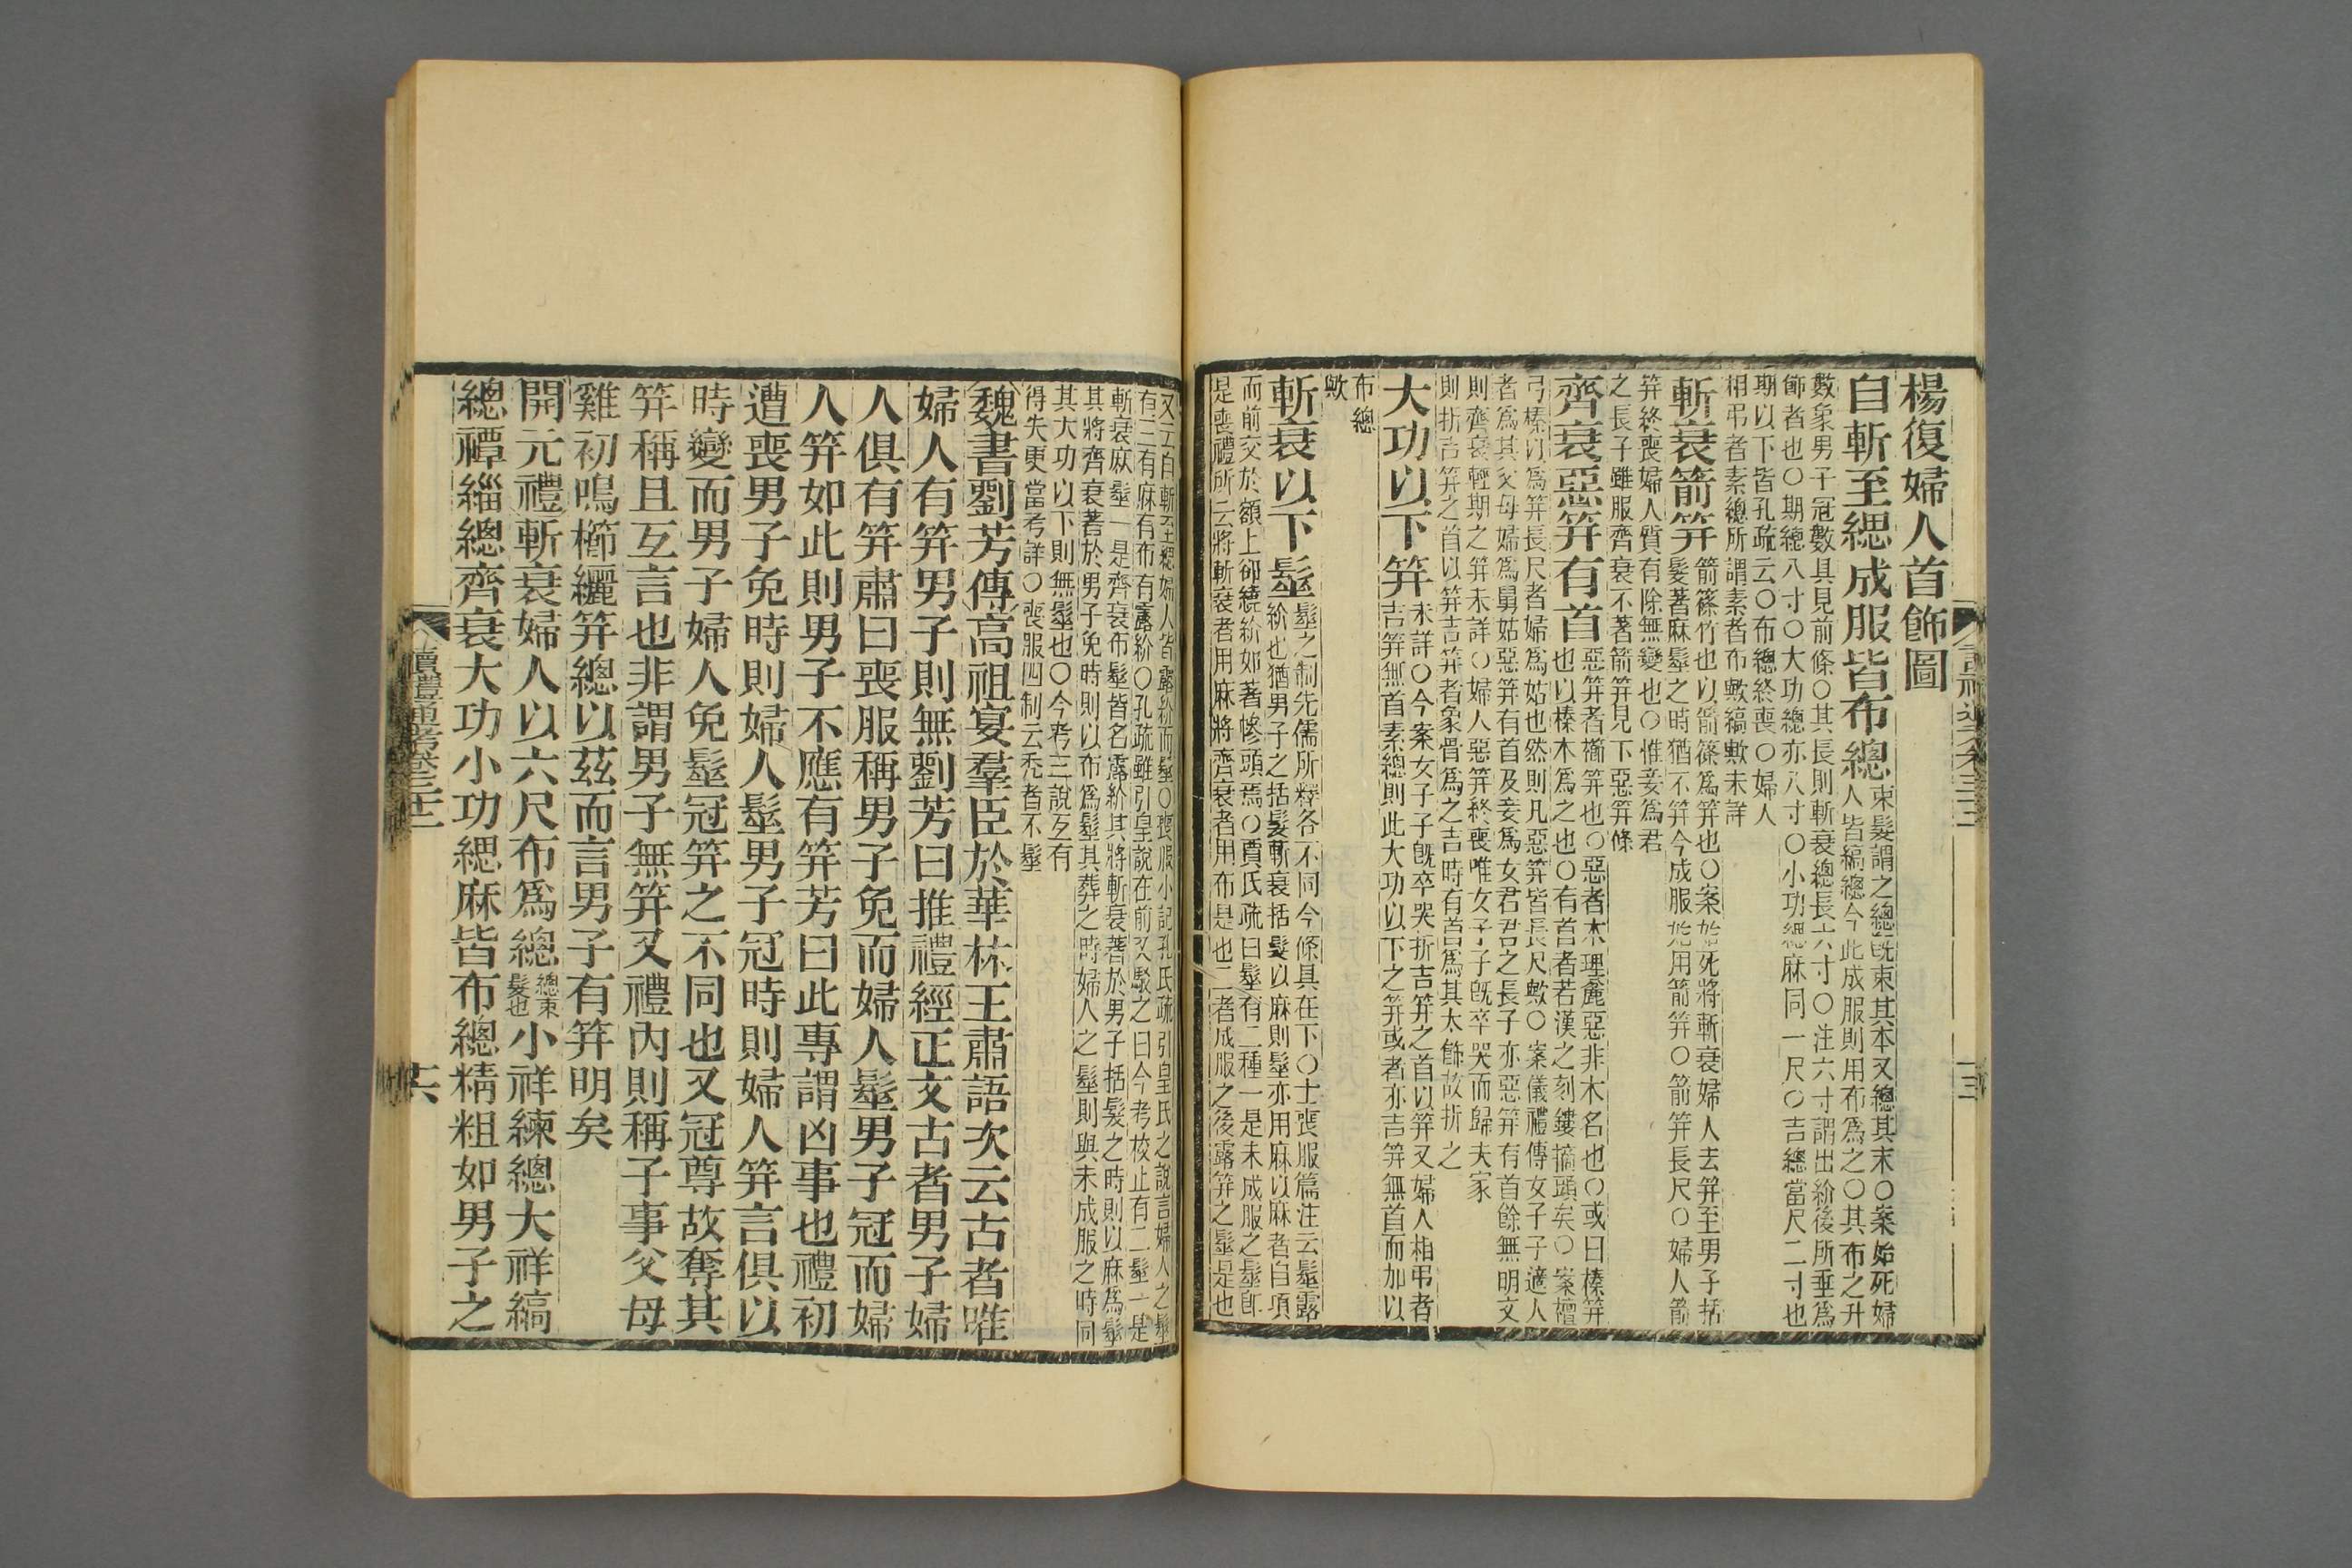 楊復婦人首飾圖
自斬至緦成服皆布總
束髮謂之總既束其本又總其末〇案始死婦
人皆縞總今此成服則用布爲之〇其布之升
數象男子冠數具見前條〇其長則斬衰總長六寸〇注六寸謂出紒後所垂爲
飾者也〇期總八寸〇大功總亦八寸〇小功緦麻同一尺〇吉總當尺二寸也
期以下皆孔疏云〇布總終喪〇婦人
相弔者素總所謂素者布歟縞歟未詳
斬衰箭笄
箭篠竹也以箭篠爲笄也〇案始死將斬衰婦人去笄至男子括
髮著麻髽之時猶不笄今成服始用箭笄〇箭笄長尺〇婦人箭
笄終喪婦人質有除無變也〇惟妾爲君
之長子雖服齊衰不著箭笄見下惡笄條
齊衰惡笄有首
惡笄者櫛笄也〇惡者木理麄惡非木名也〇或曰榛笄
也以榛木爲之也〇有首者若漢之刻鏤摘頭矣〇案檀
弓榛以爲笄長尺者婦爲姑也然則凡惡笄皆長尺歟〇案儀禮傳女子子適人
者爲其父母婦爲舅姑惡笄有首及妾爲女君君之長子亦惡笄有首餘無明文
則齊衰輕期之笄未詳〇婦人惡笄終喪唯女子子既卒哭而歸夫家
則折吉笄之首以笄吉笄者象骨爲之吉時有首爲其太飾故折之
大功以下笄
未詳〇今案女子子既卒哭折吉笄之首以笄又婦人相弔者
吉笄無首素總則此大功以下之笄或者亦吉笄無首而加以
布總
歟
斬衰以下髽
髽之制先儒所釋各不同今條具在下〇士喪服篇注云髽露
紒也猶男子之括髮斬衰括髮以麻則髽亦用麻以麻者自項
而前交於額上卻繞紒如著幓頭焉〇賈氏疏曰髽有二種一是未成服之髽即
是喪禮所云將斬衰者用麻將齊衰者用布是也二者成服之後露笄之髽是也
又云自斬至緦婦人皆露紒而髽〇喪服小記孔氏疏引皇氏之說言婦人之髽
有三有麻有布有露紒〇孔疏雖引皇說在前又駁之曰今考校止有二髽一是
斬衰麻髽一是齊衰布髽皆名露紒其將斬衰著於男子括髮之時則以麻爲髽
其將齊衰著於男子免時則以布爲髽其葬之時婦人之髽則與未成服之時同
其大功以下則無髽也〇今考三說互有
得失更當考詳〇喪服四制云禿者不髽
魏書劉芳傳高祖宴羣臣於華林王肅語次云古者唯
婦人有笄男子則無劉芳曰推禮經正文古者男子婦
人俱有笄肅曰喪服稱男子免而婦人髽男子冠而婦
人笄如此則男子不應有笄芳曰此專謂凶事也禮初
遭喪男子免時則婦人髽男子冠時則婦人笄言俱以
時變而男子婦人免髽冠笄之不同也又冠尊故奪其
笄稱且互言也非謂男子無笄又禮內則稱子事父母
雞初鳴櫛纚笄總以茲而言男子有笄明矣
開元禮斬衰婦人以六尺布爲總
總束
髮也
小祥練總大祥縞
總禫緇總齊衰大功小功緦麻皆布總精粗如男子之
讀禮通考卷三十二
十六